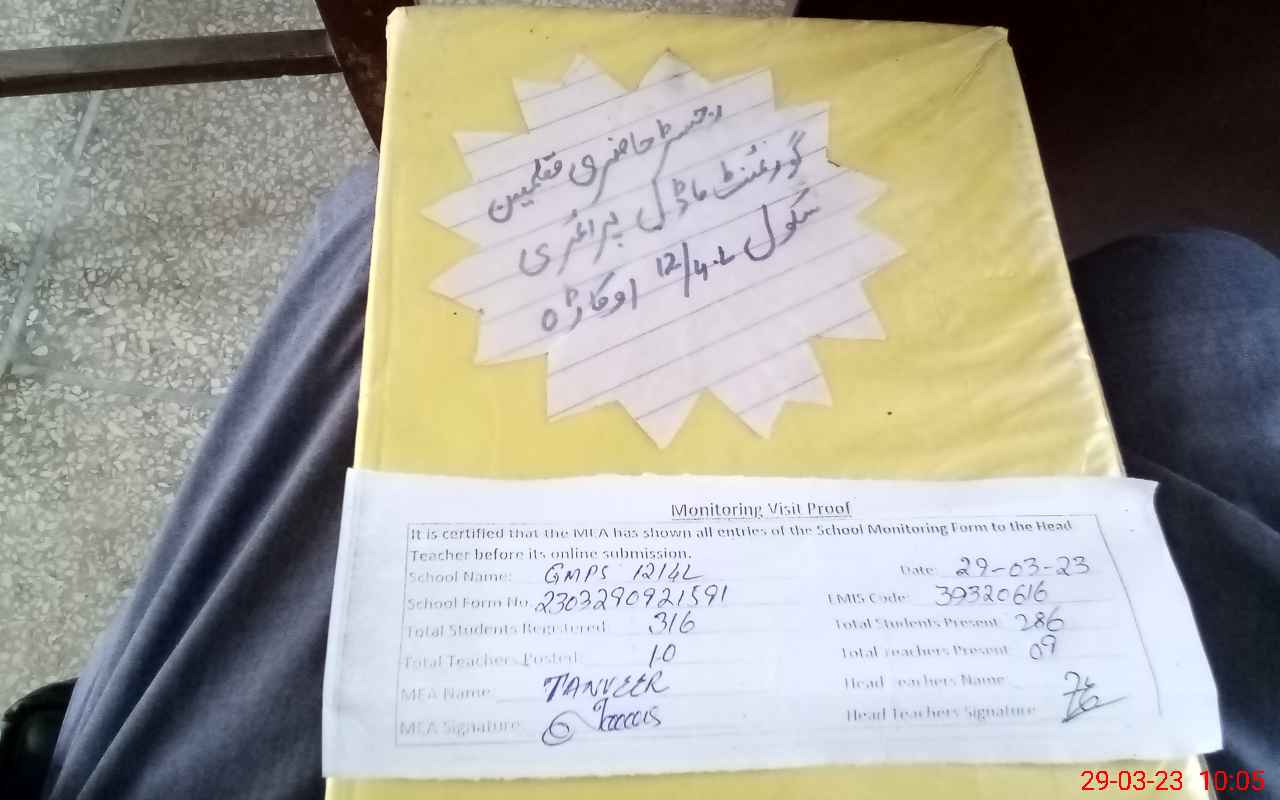 رجسٹر حاضری معلمین
گورنمنٹ ماڈل پرائمری
سکول 12/4.L اوکاڑہ
Monitoring Visit Proof
It is certified that the MEA has shown all entries of the School Monitoring Form to the Head
Teacher before its online submission.
School Name: GMPS 12/4L Date: 29-03-23
School Form No. 2303290921591 EMIS Code: 39320616
Total Students Registered 316 Total Students Present: 286
Total Teachers Posted: 10 Total Teachers Present 09
MEA Name: TANVEER Head Teachers Name
MEA Signature: Head Teachers Signature
29-03-23 10:05